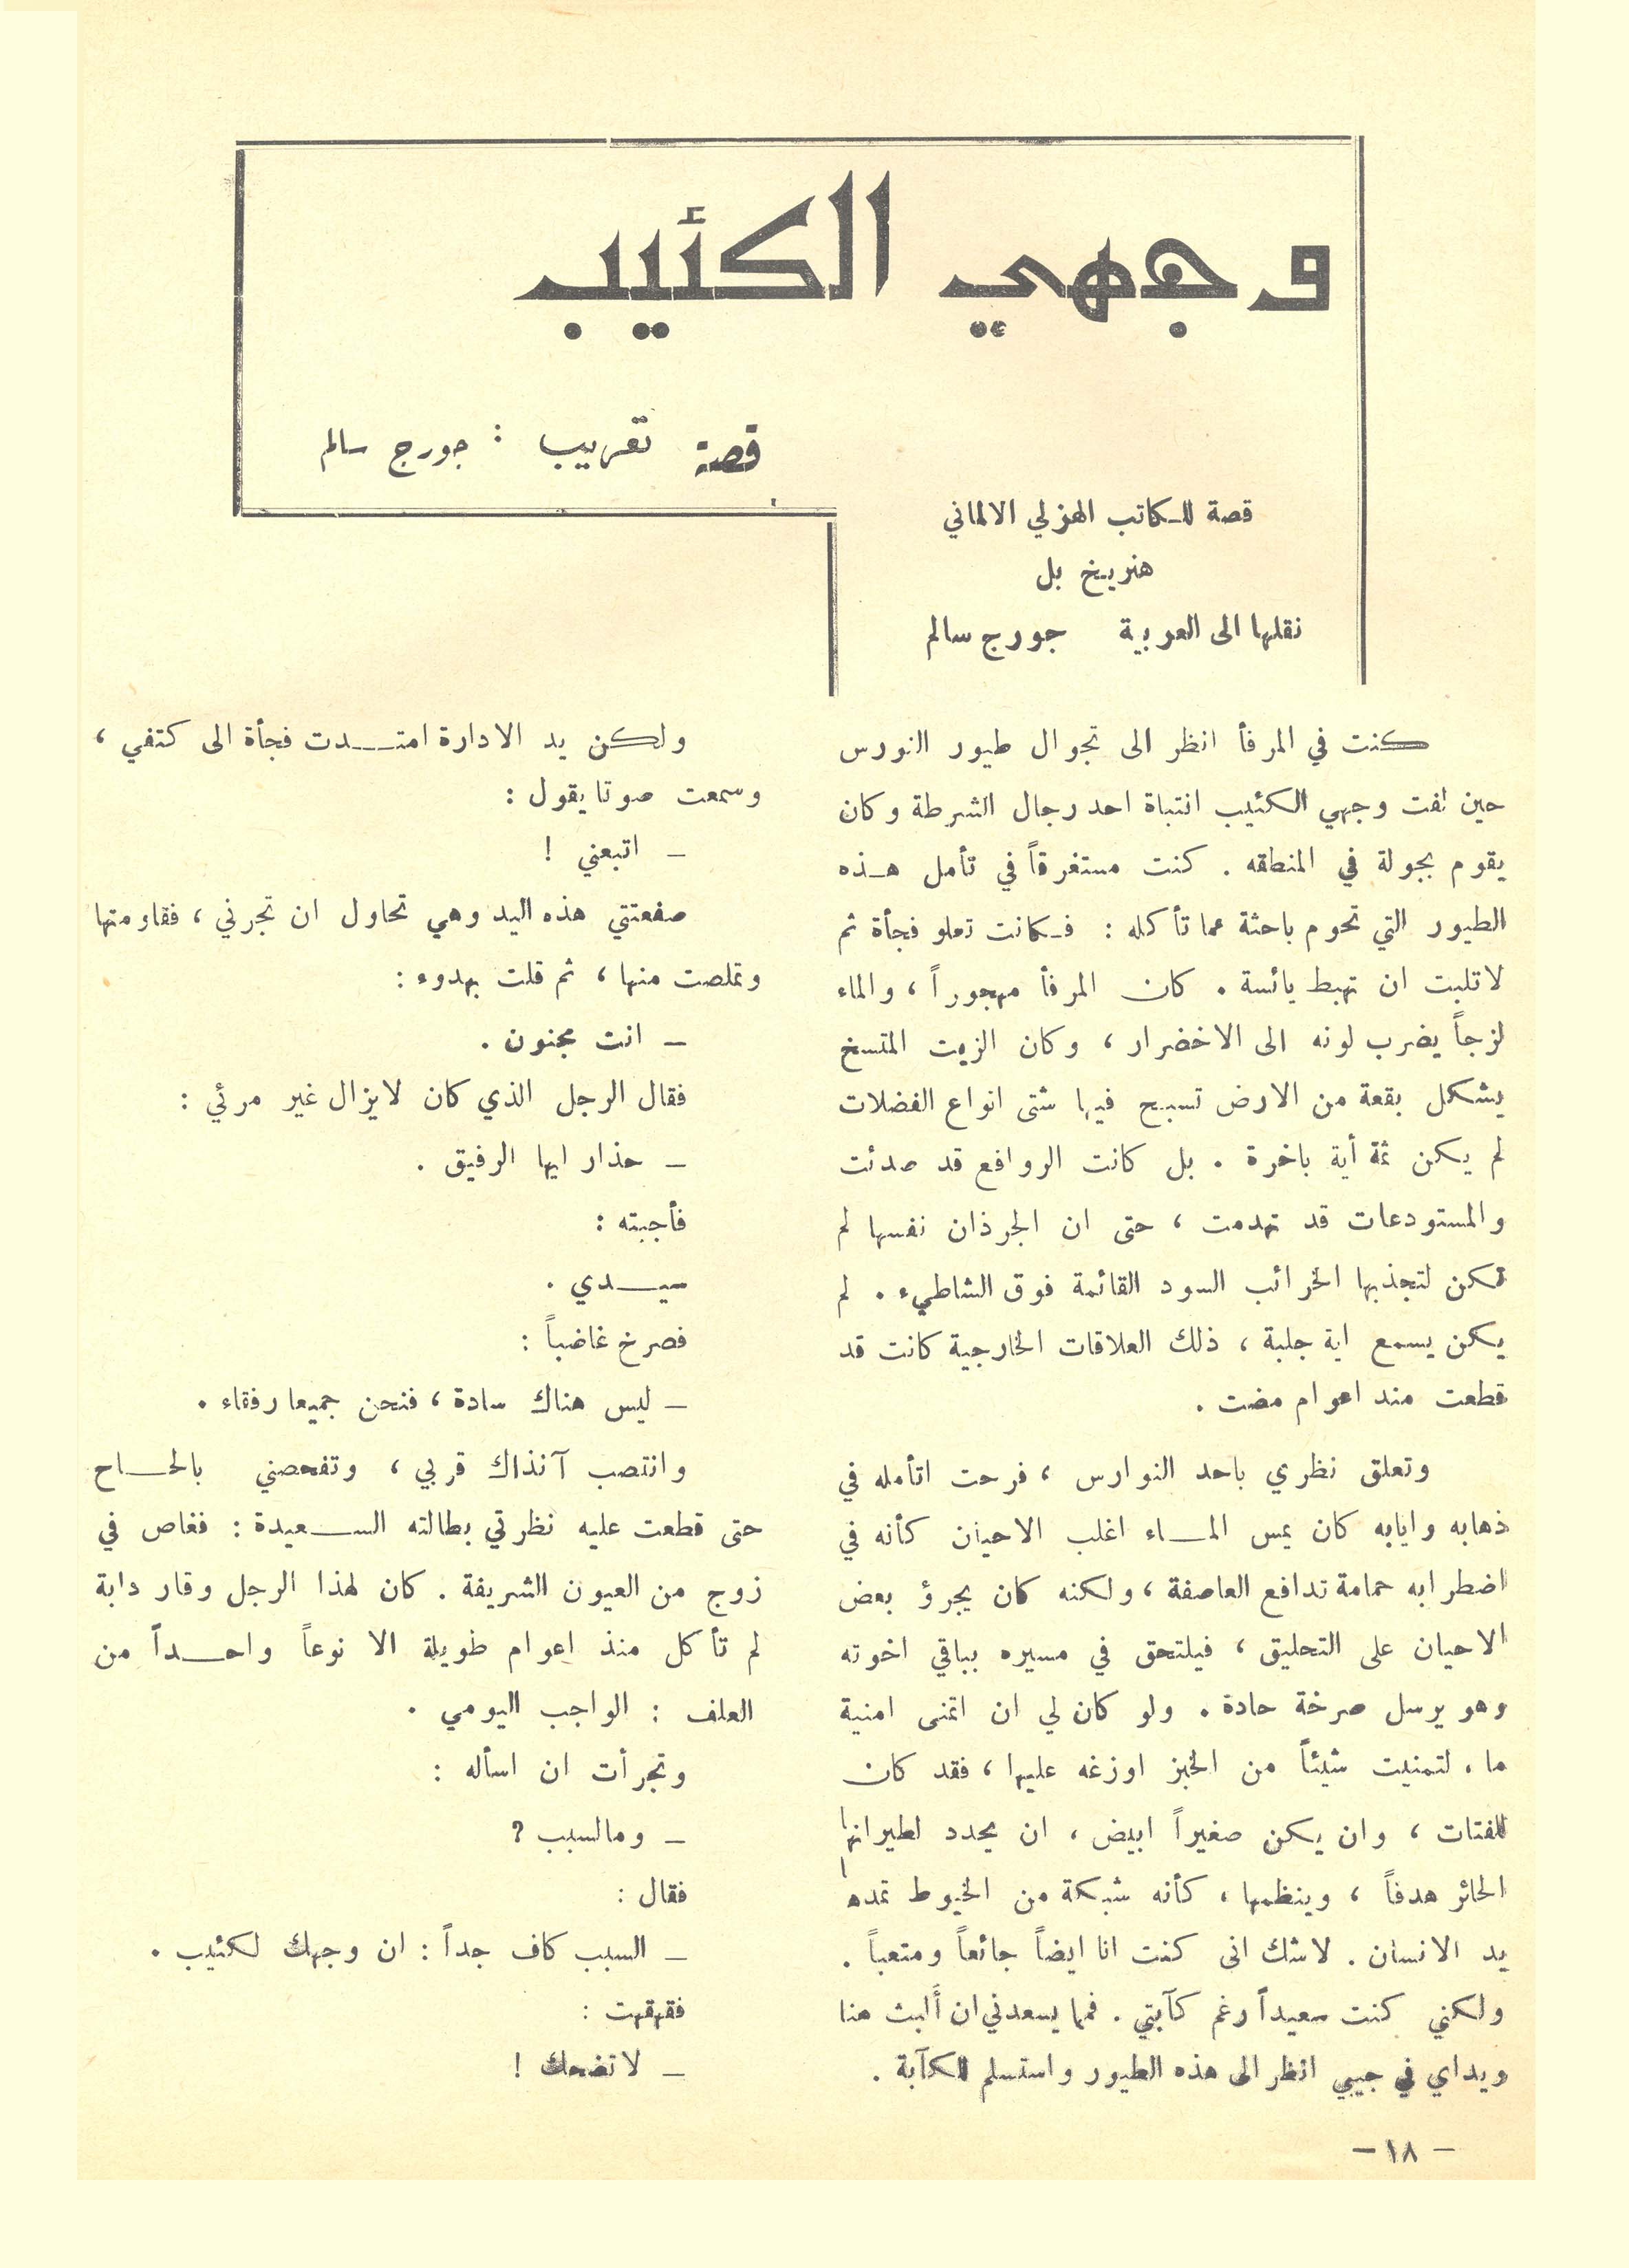 وجهي الكئيب
قصة تعريب : جورج سالم
قصة للكاتب الهزلي الالماني
هنريخ بل
نقلها الى العربية جورج سالم
كنت في المرفأ انظر الى تجوال طيور النورس
حين لفت وجهي الكئيب انتباة احد رجال الشرطة وكان
يقوم بجولة في المنطقه . كنت مستغرقاً في تأمل هذه
الطيور التي تحوم باحثة عما تأكله : فكانت تعلو فجأة ثم
لاتلبت ان تهبط يائسة . كان المرفأ مهجوراً ، والماء
لزجاً يضرب لونه الى الاخضرار ، وكان الزيت المتسخ
يشكل بقعة من الارض تسبح فيها شتى انواع الفضلات
لم يكن ثمة أية باخرة . بل كانت الروافع قد صدئت
والمستودعات قد تهدمت ، حتى ان الجرذان نفسها لم
تكن لتجذبها الخرائب السود القائمة فوق الشاطيء . لم
يكن يسمع اية جلبة ، ذلك العلاقات الخارجية كانت قد
قطعت مند اعوام مضت .
وتعلق نظري باحد النوارس ، فرحت اتأمله في
ذهابه وايابه كان يمس الماء اغلب الاحيان كأنه في
اضطرابه حمامة تدافع العاصفة ، ولكنه كان يجرؤ بعض
الاحيان على التحليق ، فيلتحق في مسيره بباقي اخوته
وهو يرسل صرخة حادة . ولو كان لي ان اتمنى امنية
ما ، لتمنيت شيئاً من الخبز اوزغه عليها ، فقد كان
للفتات ، وان يكن صغيراً ابيض ، ان يحدد لطيرانها
الحائر هدفاً ، وينظمها ، كأنه شبكة من الخيوط تمدها
يد الانسان . لاشك انى كنت انا ايضاً جائعاً ومتعباً .
ولكني كنت سعيداً رغم كآبتي . فمما يسعدني ان ألبث هنا
ويداي في جيبي انظر الى هذه الطيور واستسلم للكآبة .
ولكن يد الادارة امتدت فجأة الى كتفي ،
وسمعت صوتا يقول :
– اتبعني !
صفعتتي هذه اليد وهي تحاول ان تجرني ، فقاومتها
وتملصت منها ، ثم قلت بهدوء :
– انت مجنون .
فقال الرجل الذي كان لايزال غير مرئي :
– حذار ايها الرفيق .
فأجبته :
سيدي .
فصرخ غاضباً :
– ليس هناك سادة ، فنحن جميعا رفقاء .
وانتصب آنذاك قربي ، وتفحصني بالحاح
حتى قطعت عليه نظرتي بطالته السعيدة : فغاص في
زوج من العيون الشريفة . كان لهذا الرجل وقار دابة
لم تأكل منذ اعوام طويلة الا نوعاً واحداً من
العلف : الواجب اليومي .
وتجرأت ان اسأله :
– ومالسبب ?
فقال :
– السبب كاف جداً : ان وجهك لكئيب .
فقهقهت :
– لاتضحك !
– ١٨ –